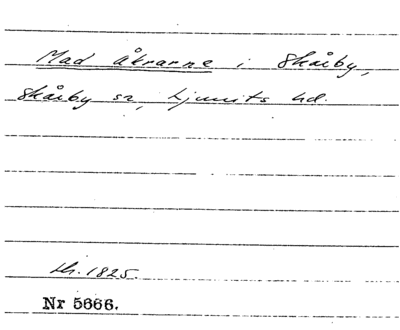 Mad åkrarne i Skårby,
Skårby sn, Ljunits hd.
Lh. 1825.
Nr 5666.